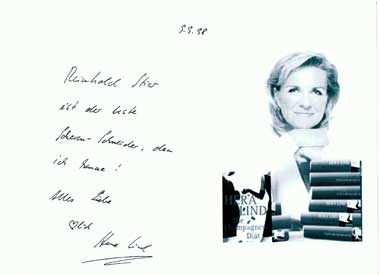 9.9.98
Reinhold Stier
ist der beste
Scheren-Schneider, den
ich kenne!
Alles Liebe
♡lich
Hera Lind
HERA
LIND
Champagner
Diät